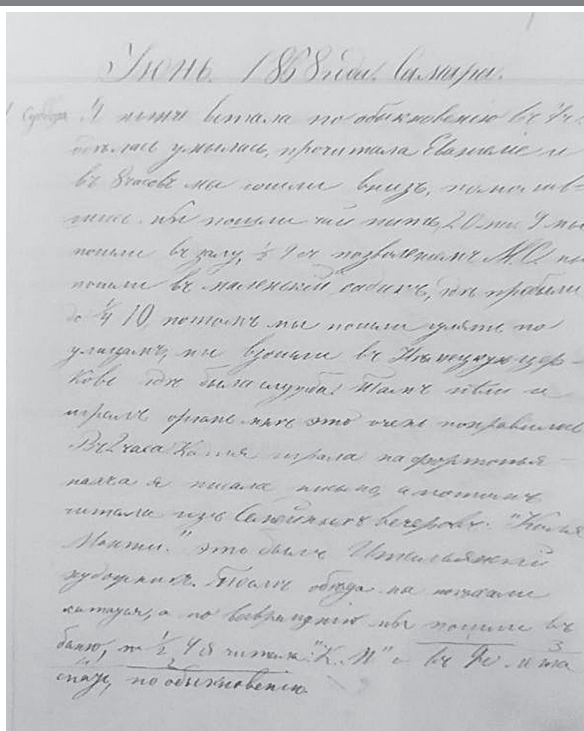 Июнь. 1868 года. Самара.
Суббота Я нынче встала по обыкновению въ
оделась умылась, прочитала Евангеліе и
въ 8 часовъ мы сошли внизъ, помолив
шись мы пошли чай пить, 20 мин. 9 мы
пошли въ залу, ½ 9 съ позволеніемъ М. А. мы
пошли въ маленькій садикъ, где пробыли
до ¼ 10, потомъ мы пошли гулять по
улицамъ, мы взошли въ Немецкую цер-
ковь где была служба. Тамъ пели и
играли органъ мне это очень понравилось
Въ 2 часа играла на фортопья-
нахъ я писала письмо, а потомъ
читала изъ Семейныхъ вечеровъ. "
" это былъ Итальянскій
художникъ. После обеда мы поехали
кататься, а по возвращеніи мы пошли въ
баню, въ ½ я читала "К. М." и въ 9 ч. пошла
спать, по обыкновенію